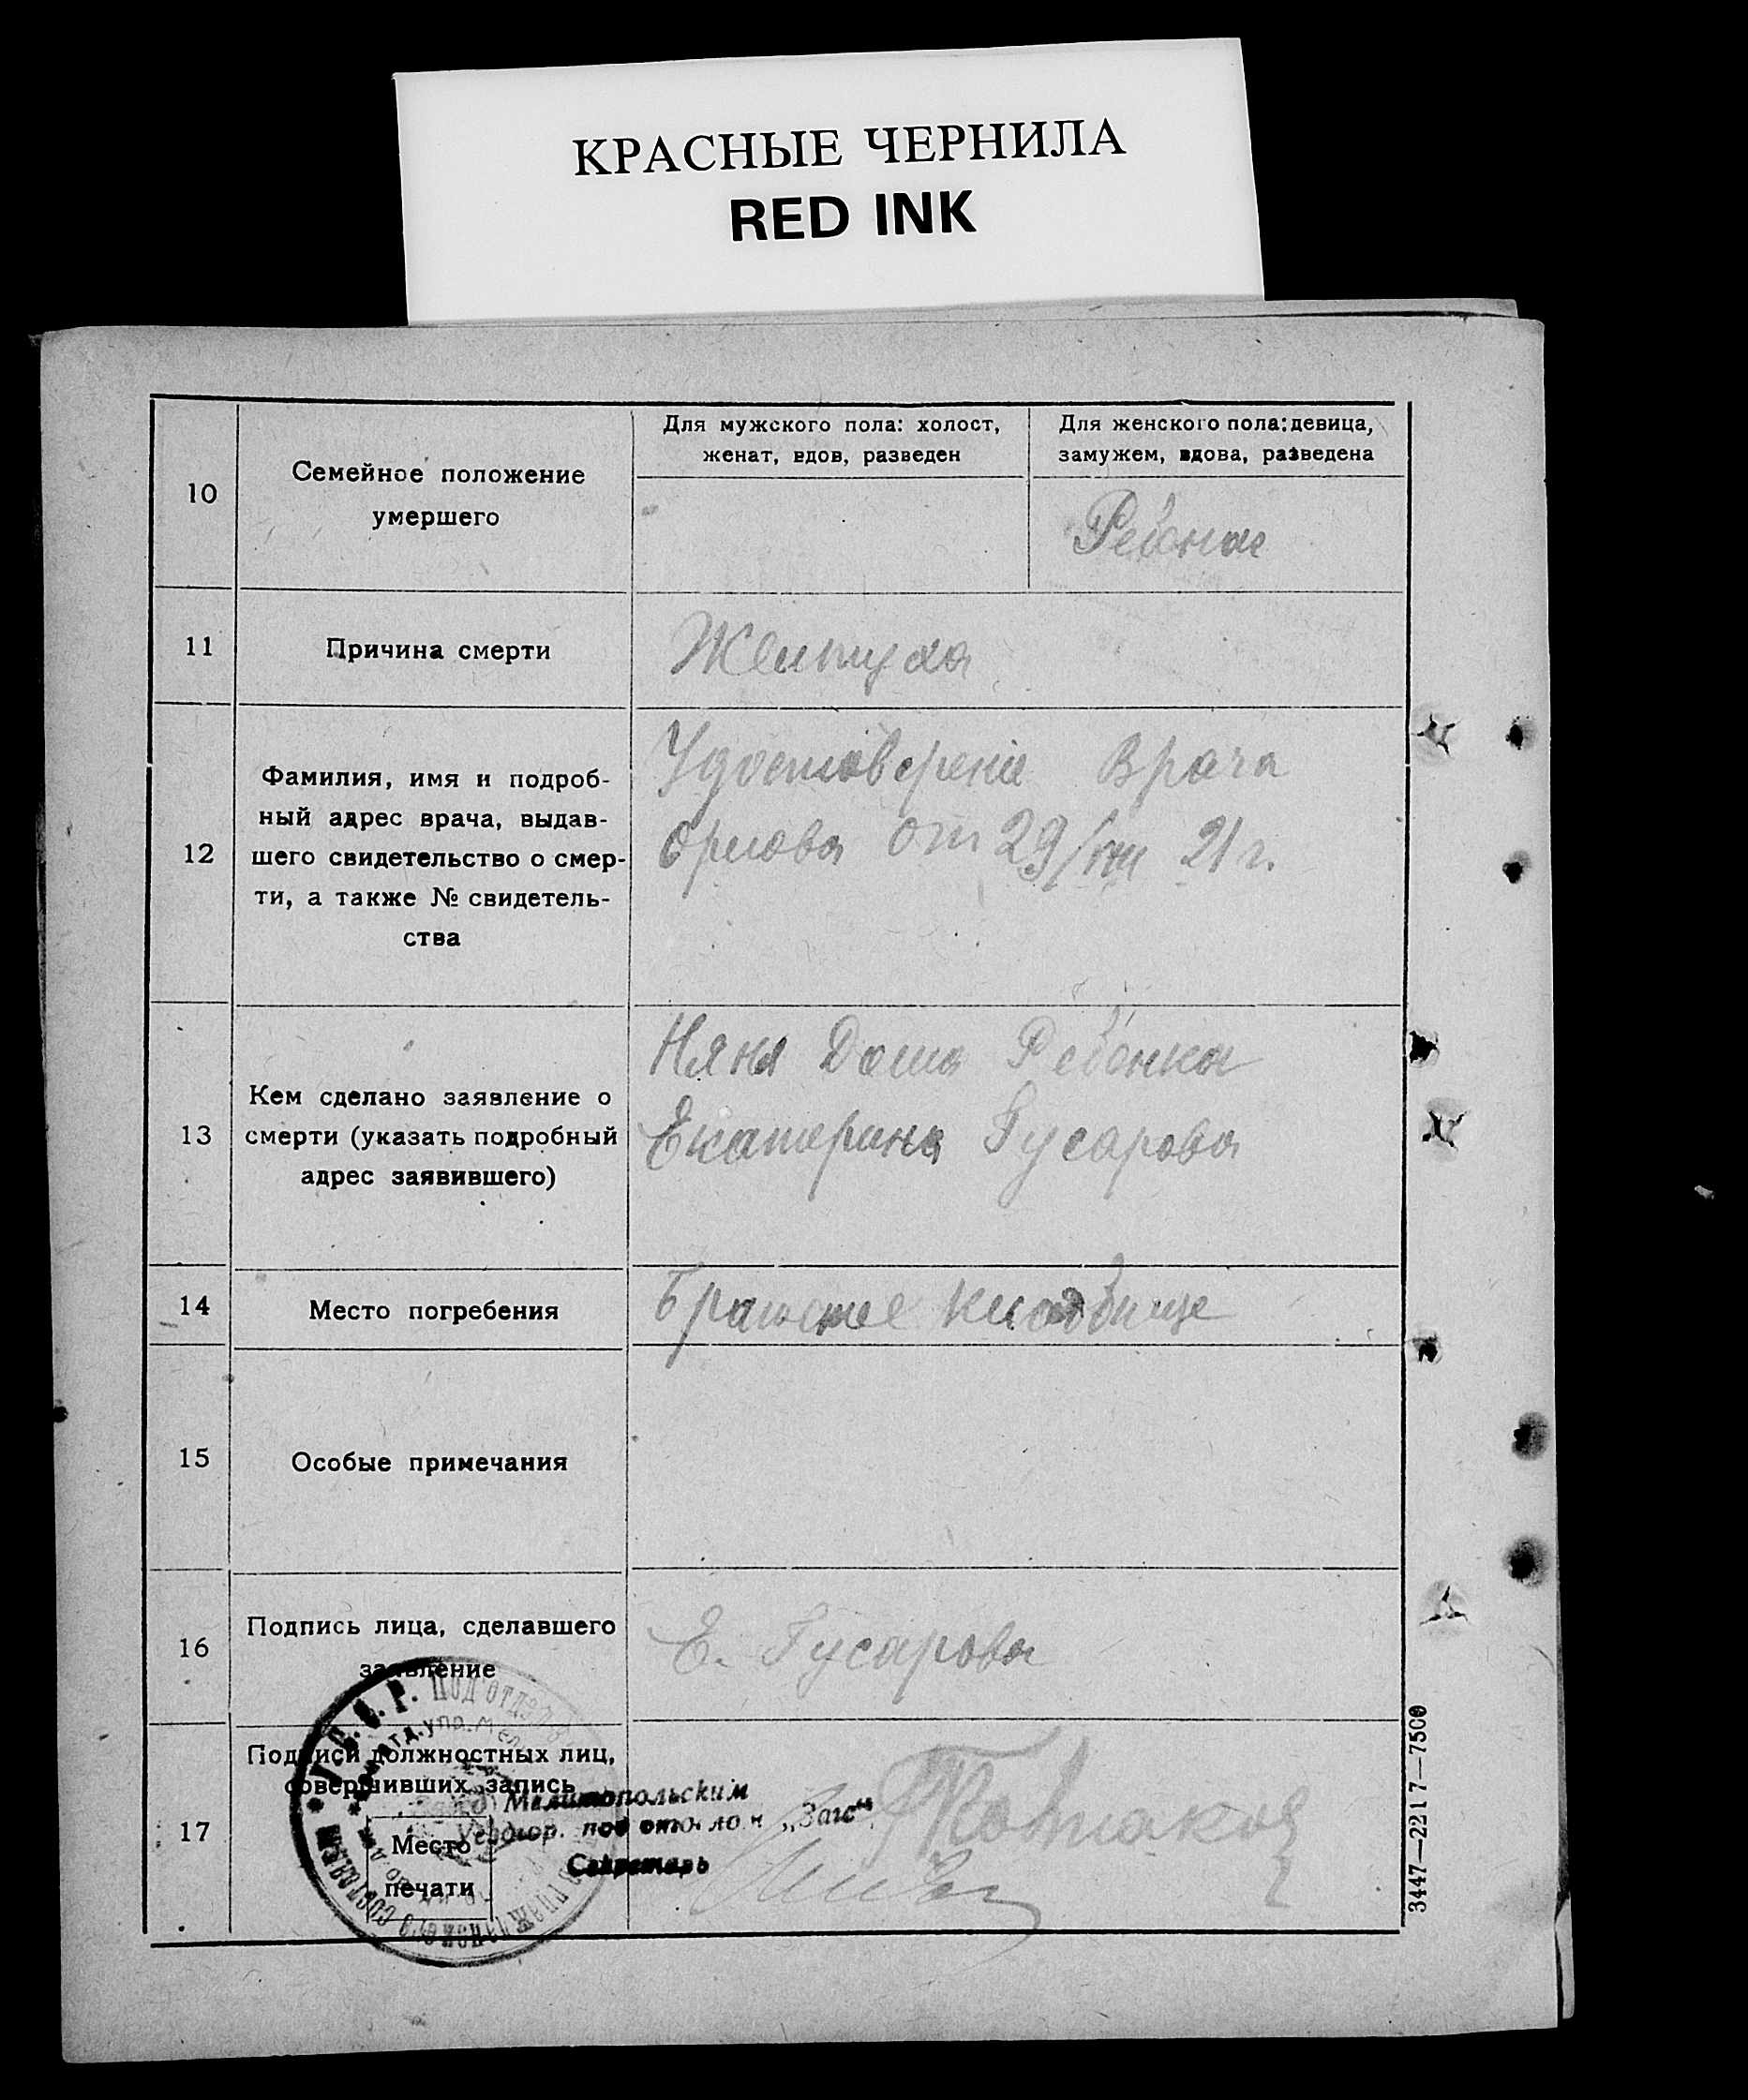 КРАСНЫЕ ЧЕРНИЛА
RED INK
10
Семейное положение
умершего
Для мужского пола: холост,
женат, вдов, разведен
Для женского пола: девица,
замужем, вдова, разведена
Ребенок
11
Причина смерти
Желтуха
12
Фамилия, имя и подроб-
ный адрес врача, выдав-
шего свидетельство о смер-
ти, а также № свидетель-
ства
Удостоверение Врача
Орлова от 29/VIII 21 г.
13
Кем сделано заявление о
смерти (указать подробный
адрес заявившего)
Няня Дома Ребенка
Екатерина Гусарова
14
Место погребения
Братское кладбище
15
Особые примечания
16
Подпись лица, сделавшего
заявление
Е. Гусарова
17
Подписи должностных лиц,
совершивших запись
Место
печати
Мелитопольским
Секретарь
3447—2217—7500